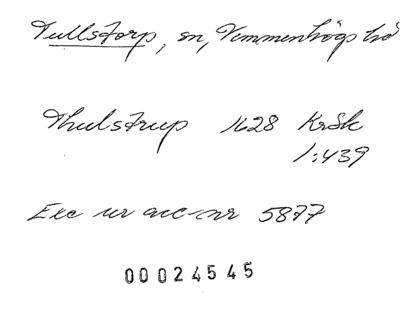 Tullstorp, sn, Vemmenhögs hd
Thulstrup 1628 KrSk
1:439
Exc ur acc-nr 5877
00024545